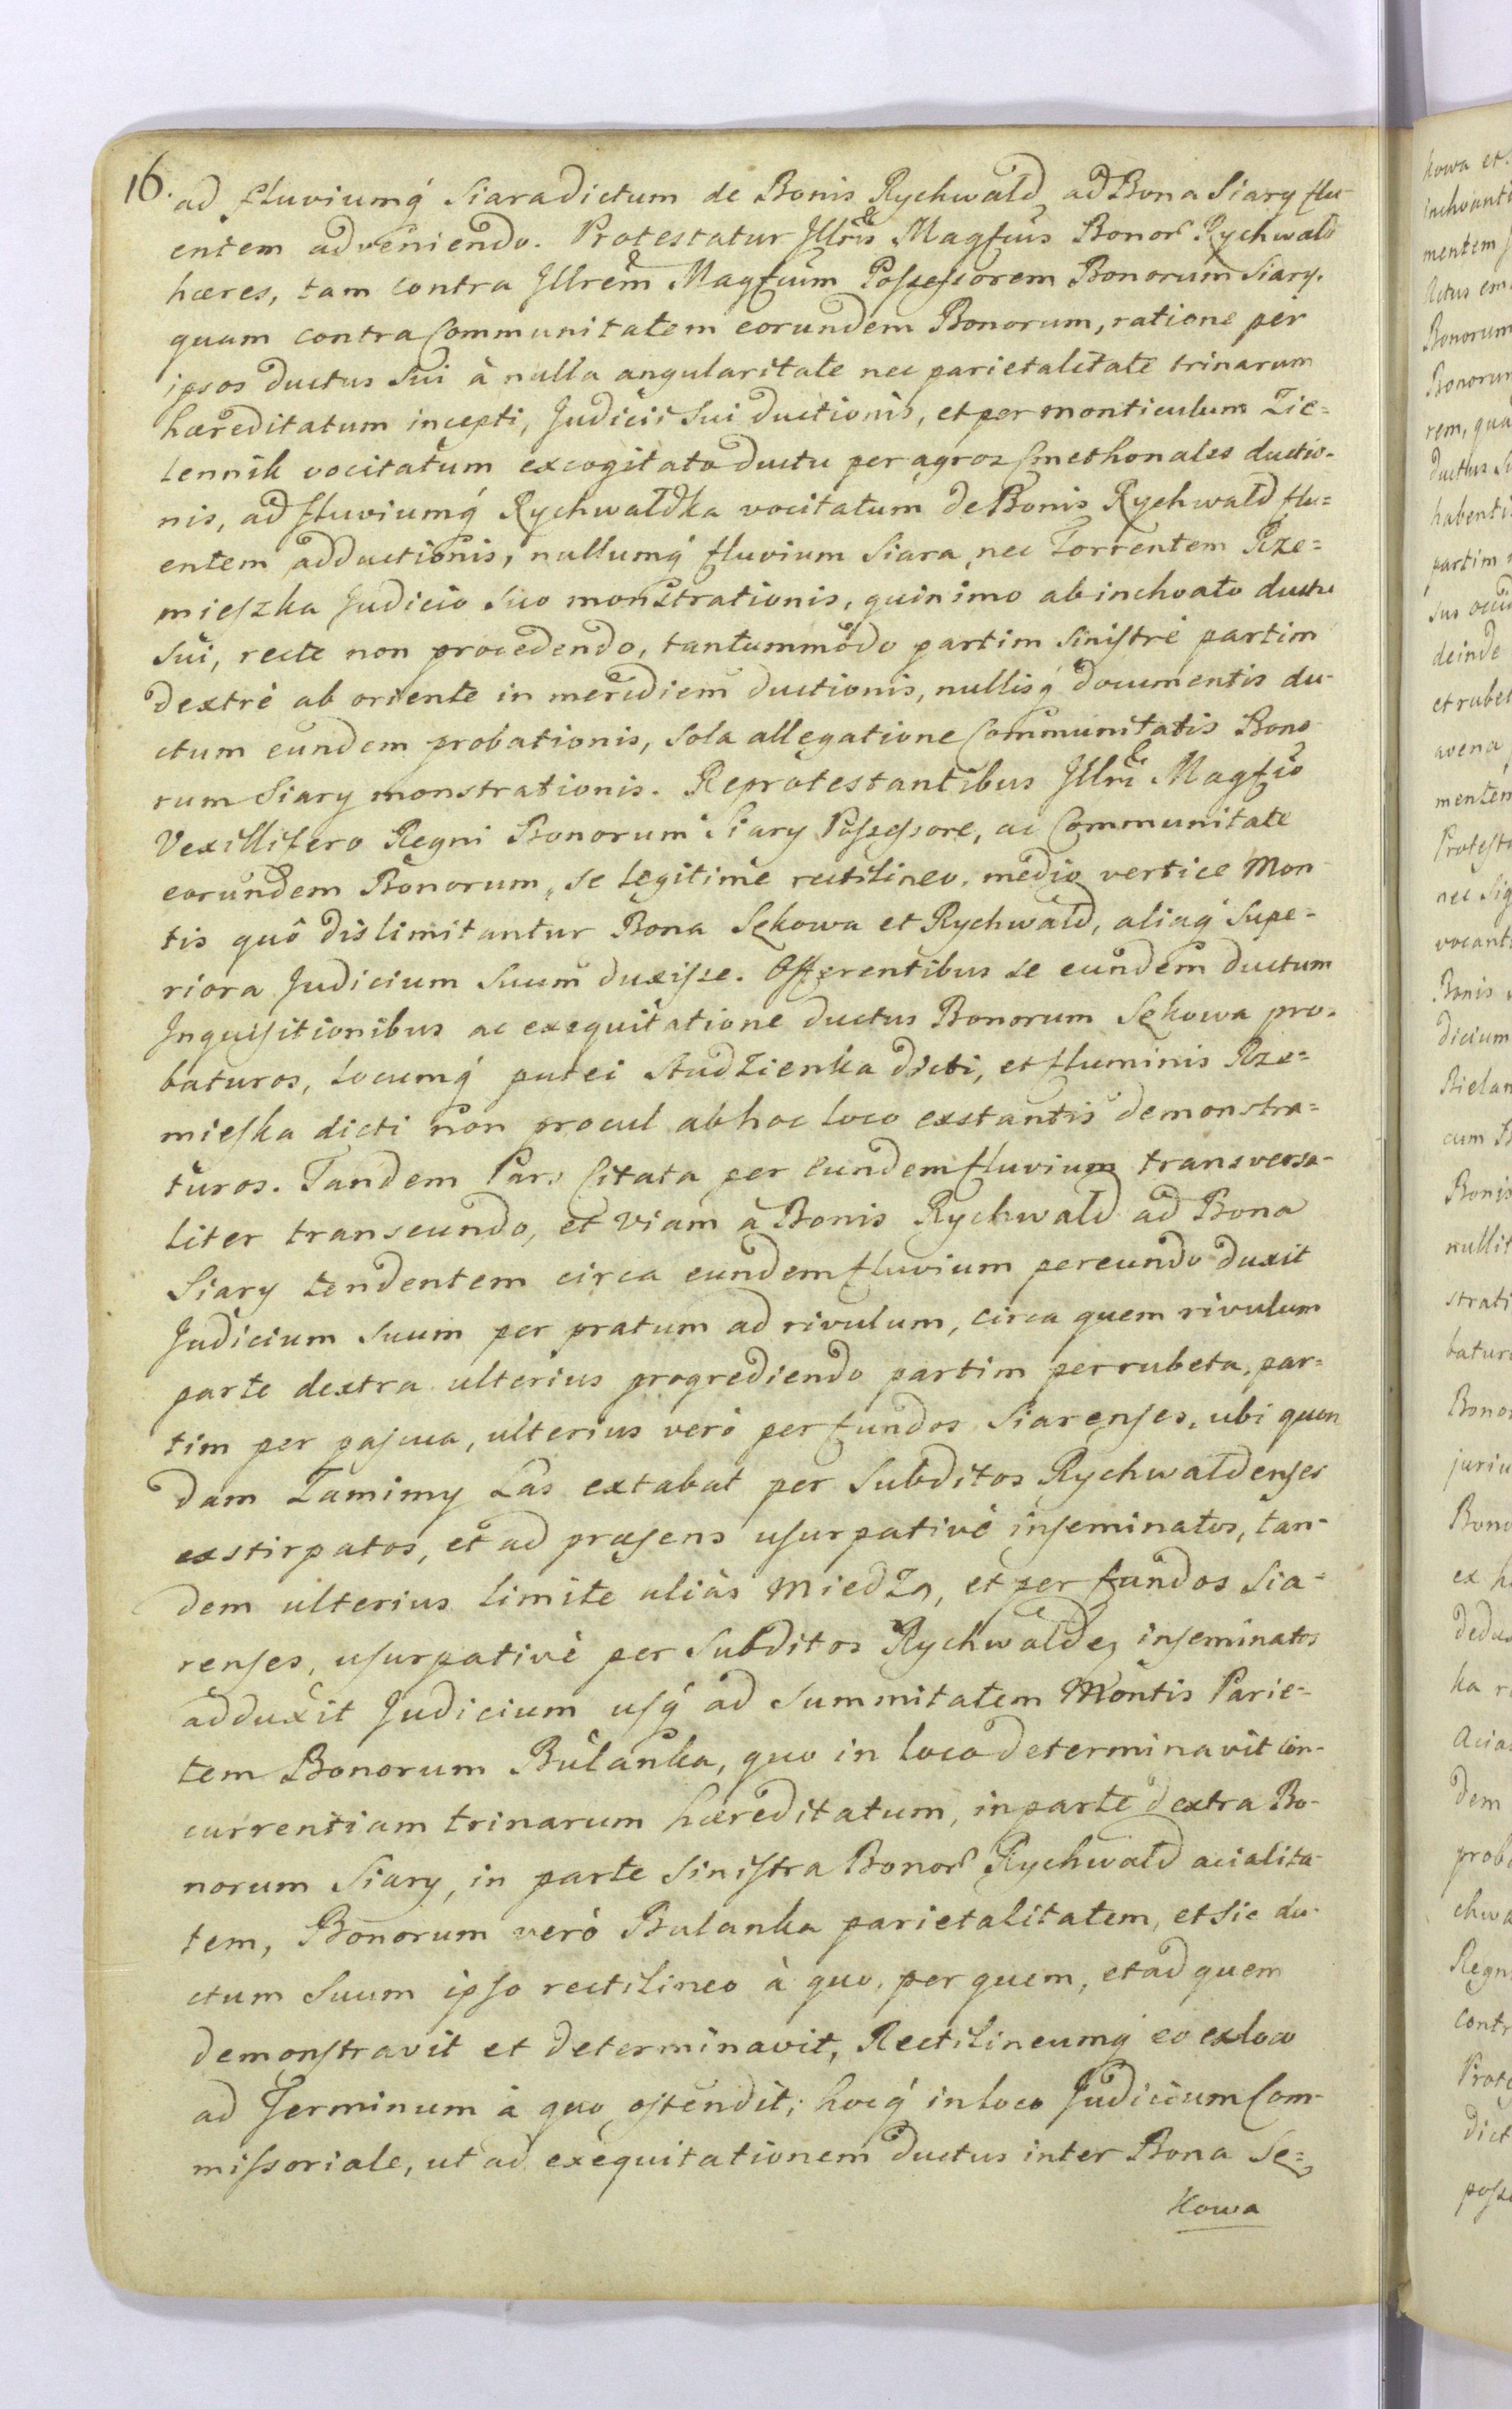 16. ad fluviumq́ Siara dictum de Bonis Rychwałd ad Bona Siary flu-
entem adveniendo. Protestatur Jllris Magfcus Bonor Rychwałd
hæres, tam contra Jllrem Magfcum Possessorem Bonorum Siary.
quam contra Communitatem eorundem Bonorum, ratione per
ipsos ductus sui à nulla angularitate nec parietalitate trinarum
hæreditatum incepti, Judicii sui ductionis, et per monticulum Zie=
lennik vocitatum excogitato ductu per agros Cmethonales ductio-
nis, ad fluviumq́ Rychwałdka vocitatum de Bonis Rychwałd flu=
entem adductionis, nullumq́ fluvium Siara, nec Torrentem Rze=
mieszka Judicio suo monstrationis, quinimo ab inchoato ductu
sui, recte non procedendo, tantummodo partim sinistrè partim
dextrè ab oriente in meridiem ductionis, nullisq́ documentis du-
ctum eundem probationis, sola allegatione Communitatis Bono
rum Siary monstrationis. Reprotestantibus Jllri Magfco
Vexillifero Regni Bonorum Siary Possessore, ac Communitate
eorundem Bonorum, se legitimè rectilineo, medio vertice Mon
tis quô dislimitantur Bona Sękowa et Rychwałd, aliaq́ supe-
riora Judicium suum duxisse. Offerentibus se eundem ductum
Jnquisitionibus ac exequitatione ductus Bonorum Sękowa pro-
baturos, locumq́ putei Studzienka dicti, et fluminis Rze=
mieska dicti non procul ab hoc loco exstantis demonstra=
turos. Tandem Pars Citata per eundem fluvium transversa-
liter transeundo, et viam a Bonis Rychwałd ad Bona
Siary tendentem circa eundem fluvium pereundo duxit
Judicium suum per pratum ad rivulum, circa quem rivulum
parte dextra ulterius progrediendo partim per rubeta, par=
tim per pascua, ulterius verò per fundos Siarenses, ubi quon
dam Zamimy Las extabat per Subditos Rychwałdenses
exstirpatos, et ad præsens usurpativè inseminatos, tan-
dem ulterius limite aliàs Miedzą, et per fundos Sia=
renses, usurpativè per Subditos Rychwałdes inseminatos
adduxit Judicium usq́ ad summitatem Montis Parie-
tem Bonorum Bulanka, quo in loco determinavit con-
currentiam trinarum hæreditatum, in parte dextra Bo-
norum Siary, in parte sinistra Bonor Rychwałd acialita-
tem, Bonorum verò Bulanka parietalitatem, et sic du-
ctum suum ipso rectilineo à quo, per quem, et ad quem
demonstravit et determinavit, Rectilineumq́ eo ex loco
ad Terminum à quo ostendit; hocq́ in loco Judicium Com-
missoriale, ut ad exequitationem ductus inter Bona Sę=
kowa
kowa et
inchoanti
mentem
Actus em
Bonorum
Bonorum
rem, qua
ductus su
habenti
partim
sus occi
deinde
et rubet
avena
mentem
Protesta
nec sig
vocant
Bonis
dicium
Bielan
cum B
Bonis
nullit
strati
batur
Bonor
juriu
Bono
ex h
dedu
ka r
acia
dem
prob
chwa
Regn
contr
Prote
dict
posse